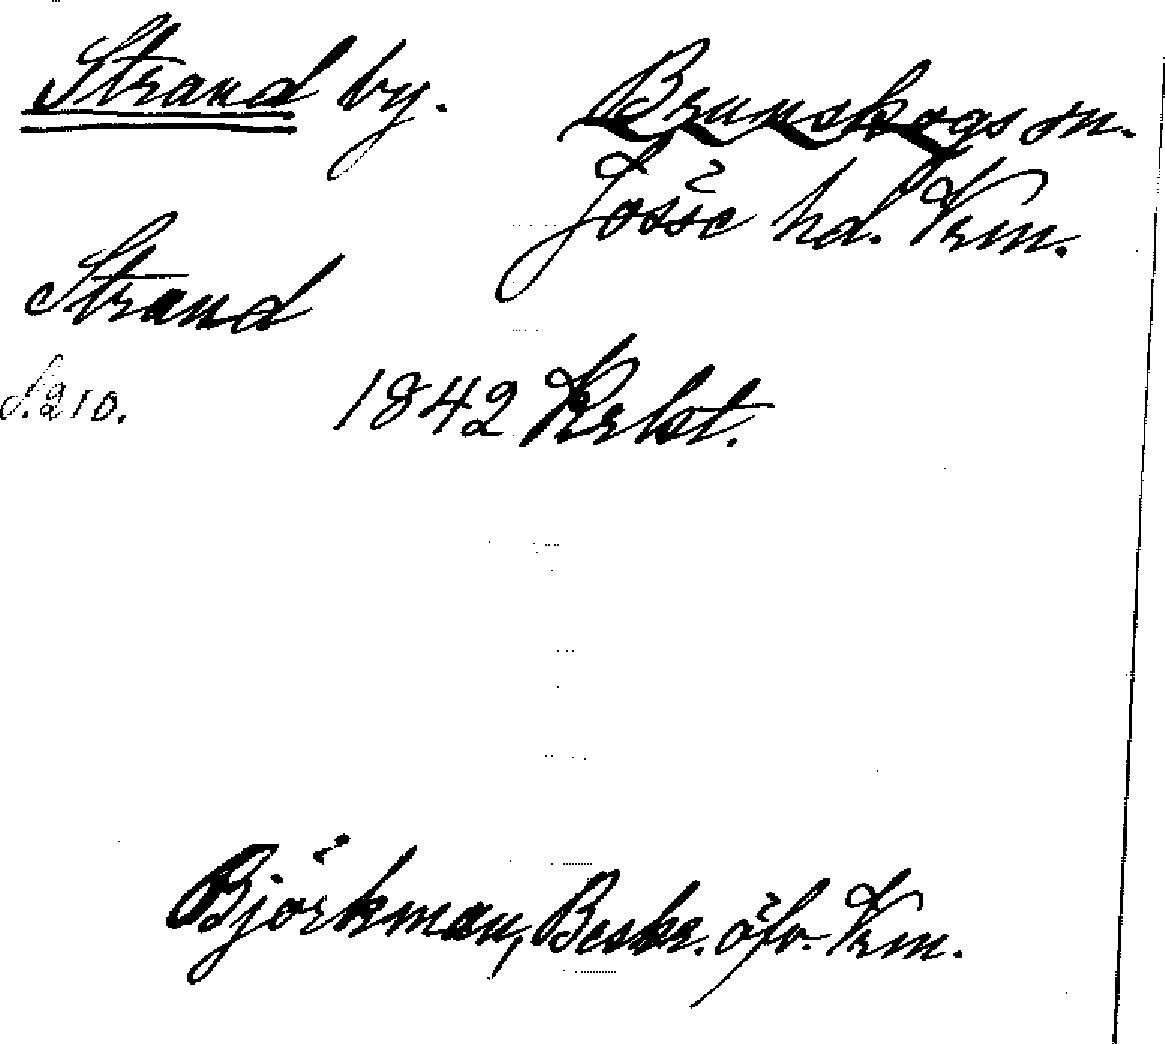 Strand by.
Brunskogs sn.
Jösse hd. Vrm.
Strand
S. 210.
1842 Krbt.
Björkman, Beskr. öfv. Vrm.